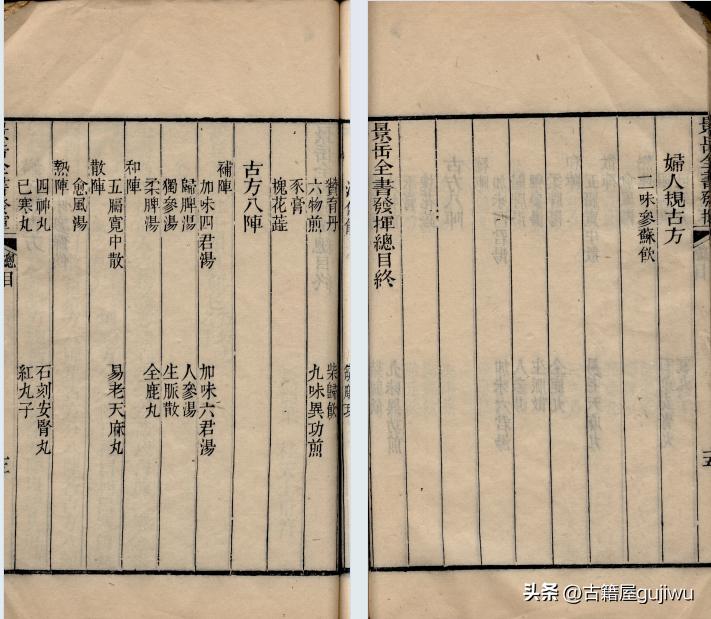 贊育丹 柴歸飲
六物煎 九味異功煎
豕膏
槐花蕋
古方八陣
補陣
加味四君湯 加味六君湯
歸脾湯 人參湯
獨參湯 生脈散
柔脾湯 全鹿丸
和陣
五膈寬中散 易老天麻丸
散陣
愈風湯
熱陣
四神丸 石刻安腎丸
已寒丸 紅丸子
景岳全書發揮 總目 三
景岳全書發揮 五
婦人規古方
二味參蘇飲
景岳全書發揮總目終
头条 @古籍屋gujiwu